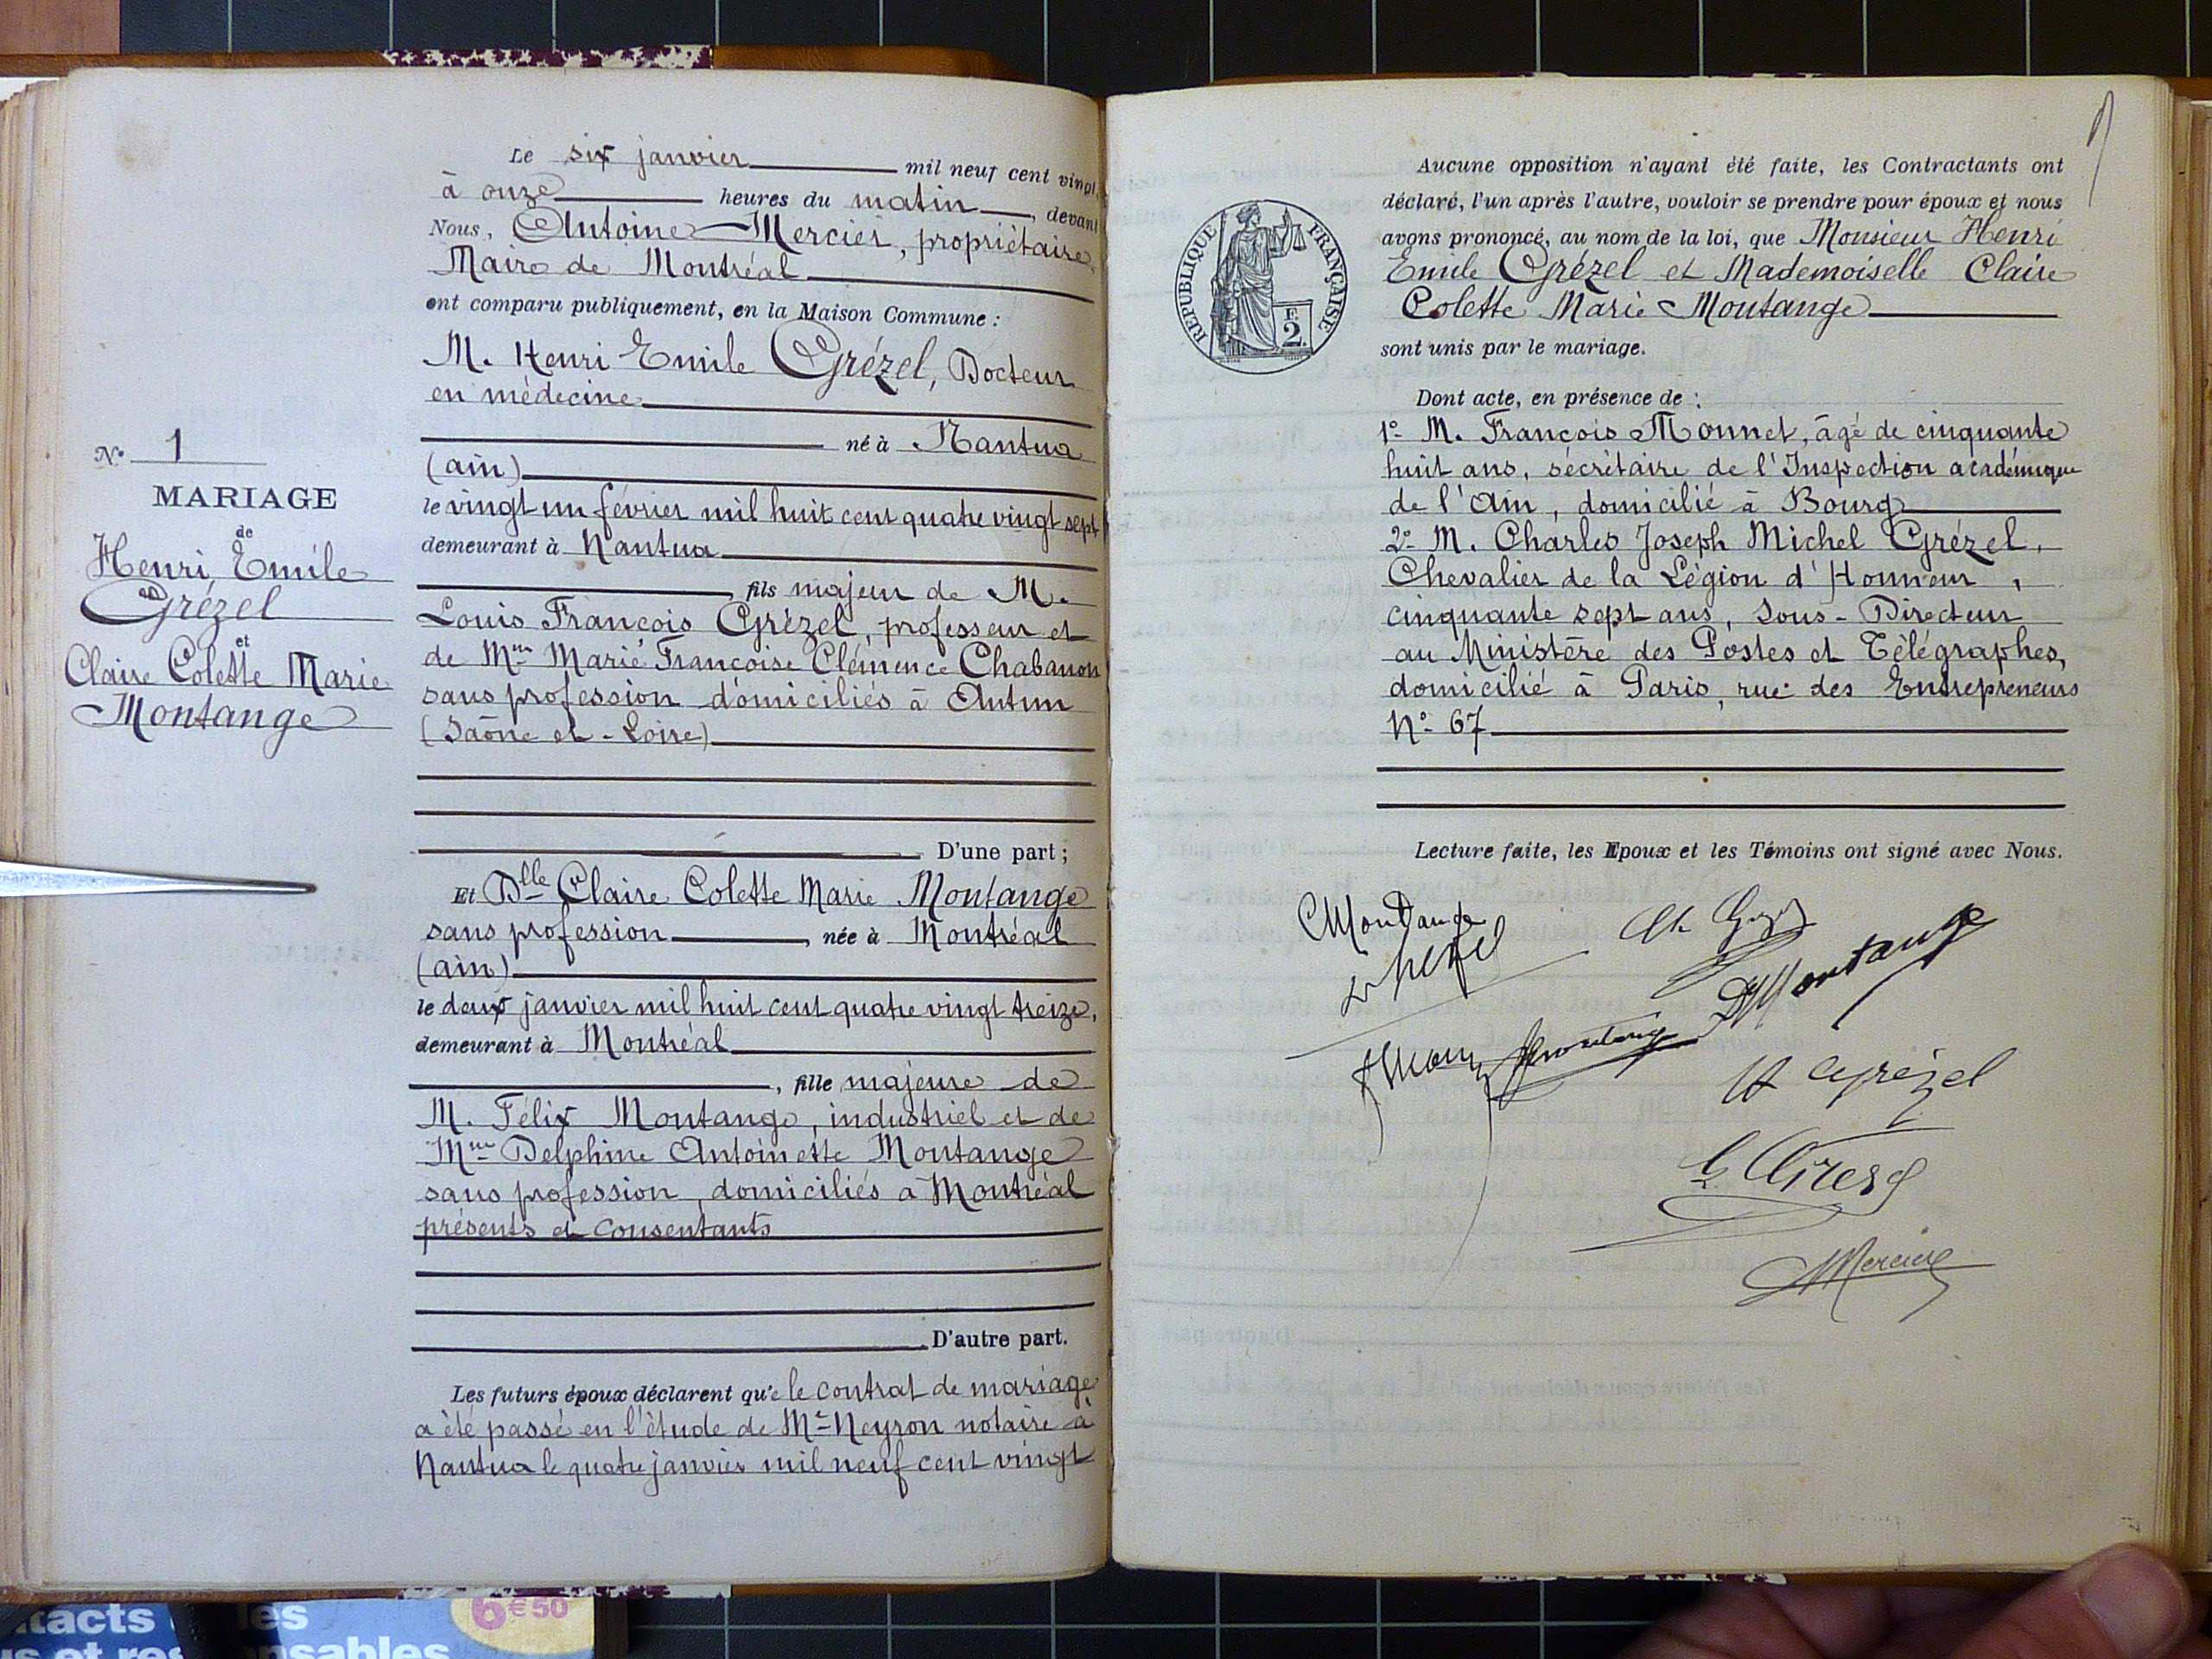 Le six janvier mil neuf cent vingt,
à onze heures du matin, devant
Nous, Antoine Mercier, propriétaire,
Maire de Montréal
ont comparu publiquement, en la Maison Commune :
M. Henri Emile Grézel, Docteur
en médecine
né à Nantua
(ain)
le vingt un février mil huit cent quatre vingt sept
demeurant à Nantua
, fils majeur de M.
Louis François Grézel, professeur et
de Mme Marie Françoise Clémence Chabanon
sans profession domiciliés à Autun
(Saône et-Loire)
D'une part ;
Et Dlle Claire Colette Marie Montange
sans profession, née à Montréal
(ain)
le deux janvier mil huit cent quatre vingt treize,
demeurant à Montréal
, fille majeure de
M. Félix Montange, industriel et de
Mme Delphine Antoinette Montange
sans profession, domiciliés à Montréal
présents et consentants
D'autre part.
Les futurs époux déclarent que le contrat de mariage
a été passé en l'étude de Me Neyron notaire à
Nantua le quatre janvier mil neuf cent vingt
No 1
MARIAGE
de
Henri Emile
Grézel
et
Claire Colette Marie
Montange
RÉPUBLIQUE FRANÇAISE
F.
2
Aucune opposition n'ayant été faite, les Contractants ont
déclaré, l'un après l'autre, vouloir se prendre pour époux et nous
avons prononcé, au nom de la loi, que Monsieur Henri
Emile Grézel et Mademoiselle Claire
Colette Marie Montange
sont unis par le mariage.
Dont acte, en présence de :
1o M. François Monnet, âgé de cinquante
huit ans, sécrétaire de l'Inspection académique
de l'Ain, domicilié à Bourg
2o M. Charles Joseph Michel Grézel,
Chevalier de la Légion d'Honneur,
cinquante sept ans, Sous-Directeur
au Ministère des Postes et Télégraphes,
domicilié à Paris, rue des Entrepreneurs
No 67
Lecture faite, les Epoux et les Témoins ont signé avec Nous.
CMontange
DMontange
H Grézel
Mercier
6€50